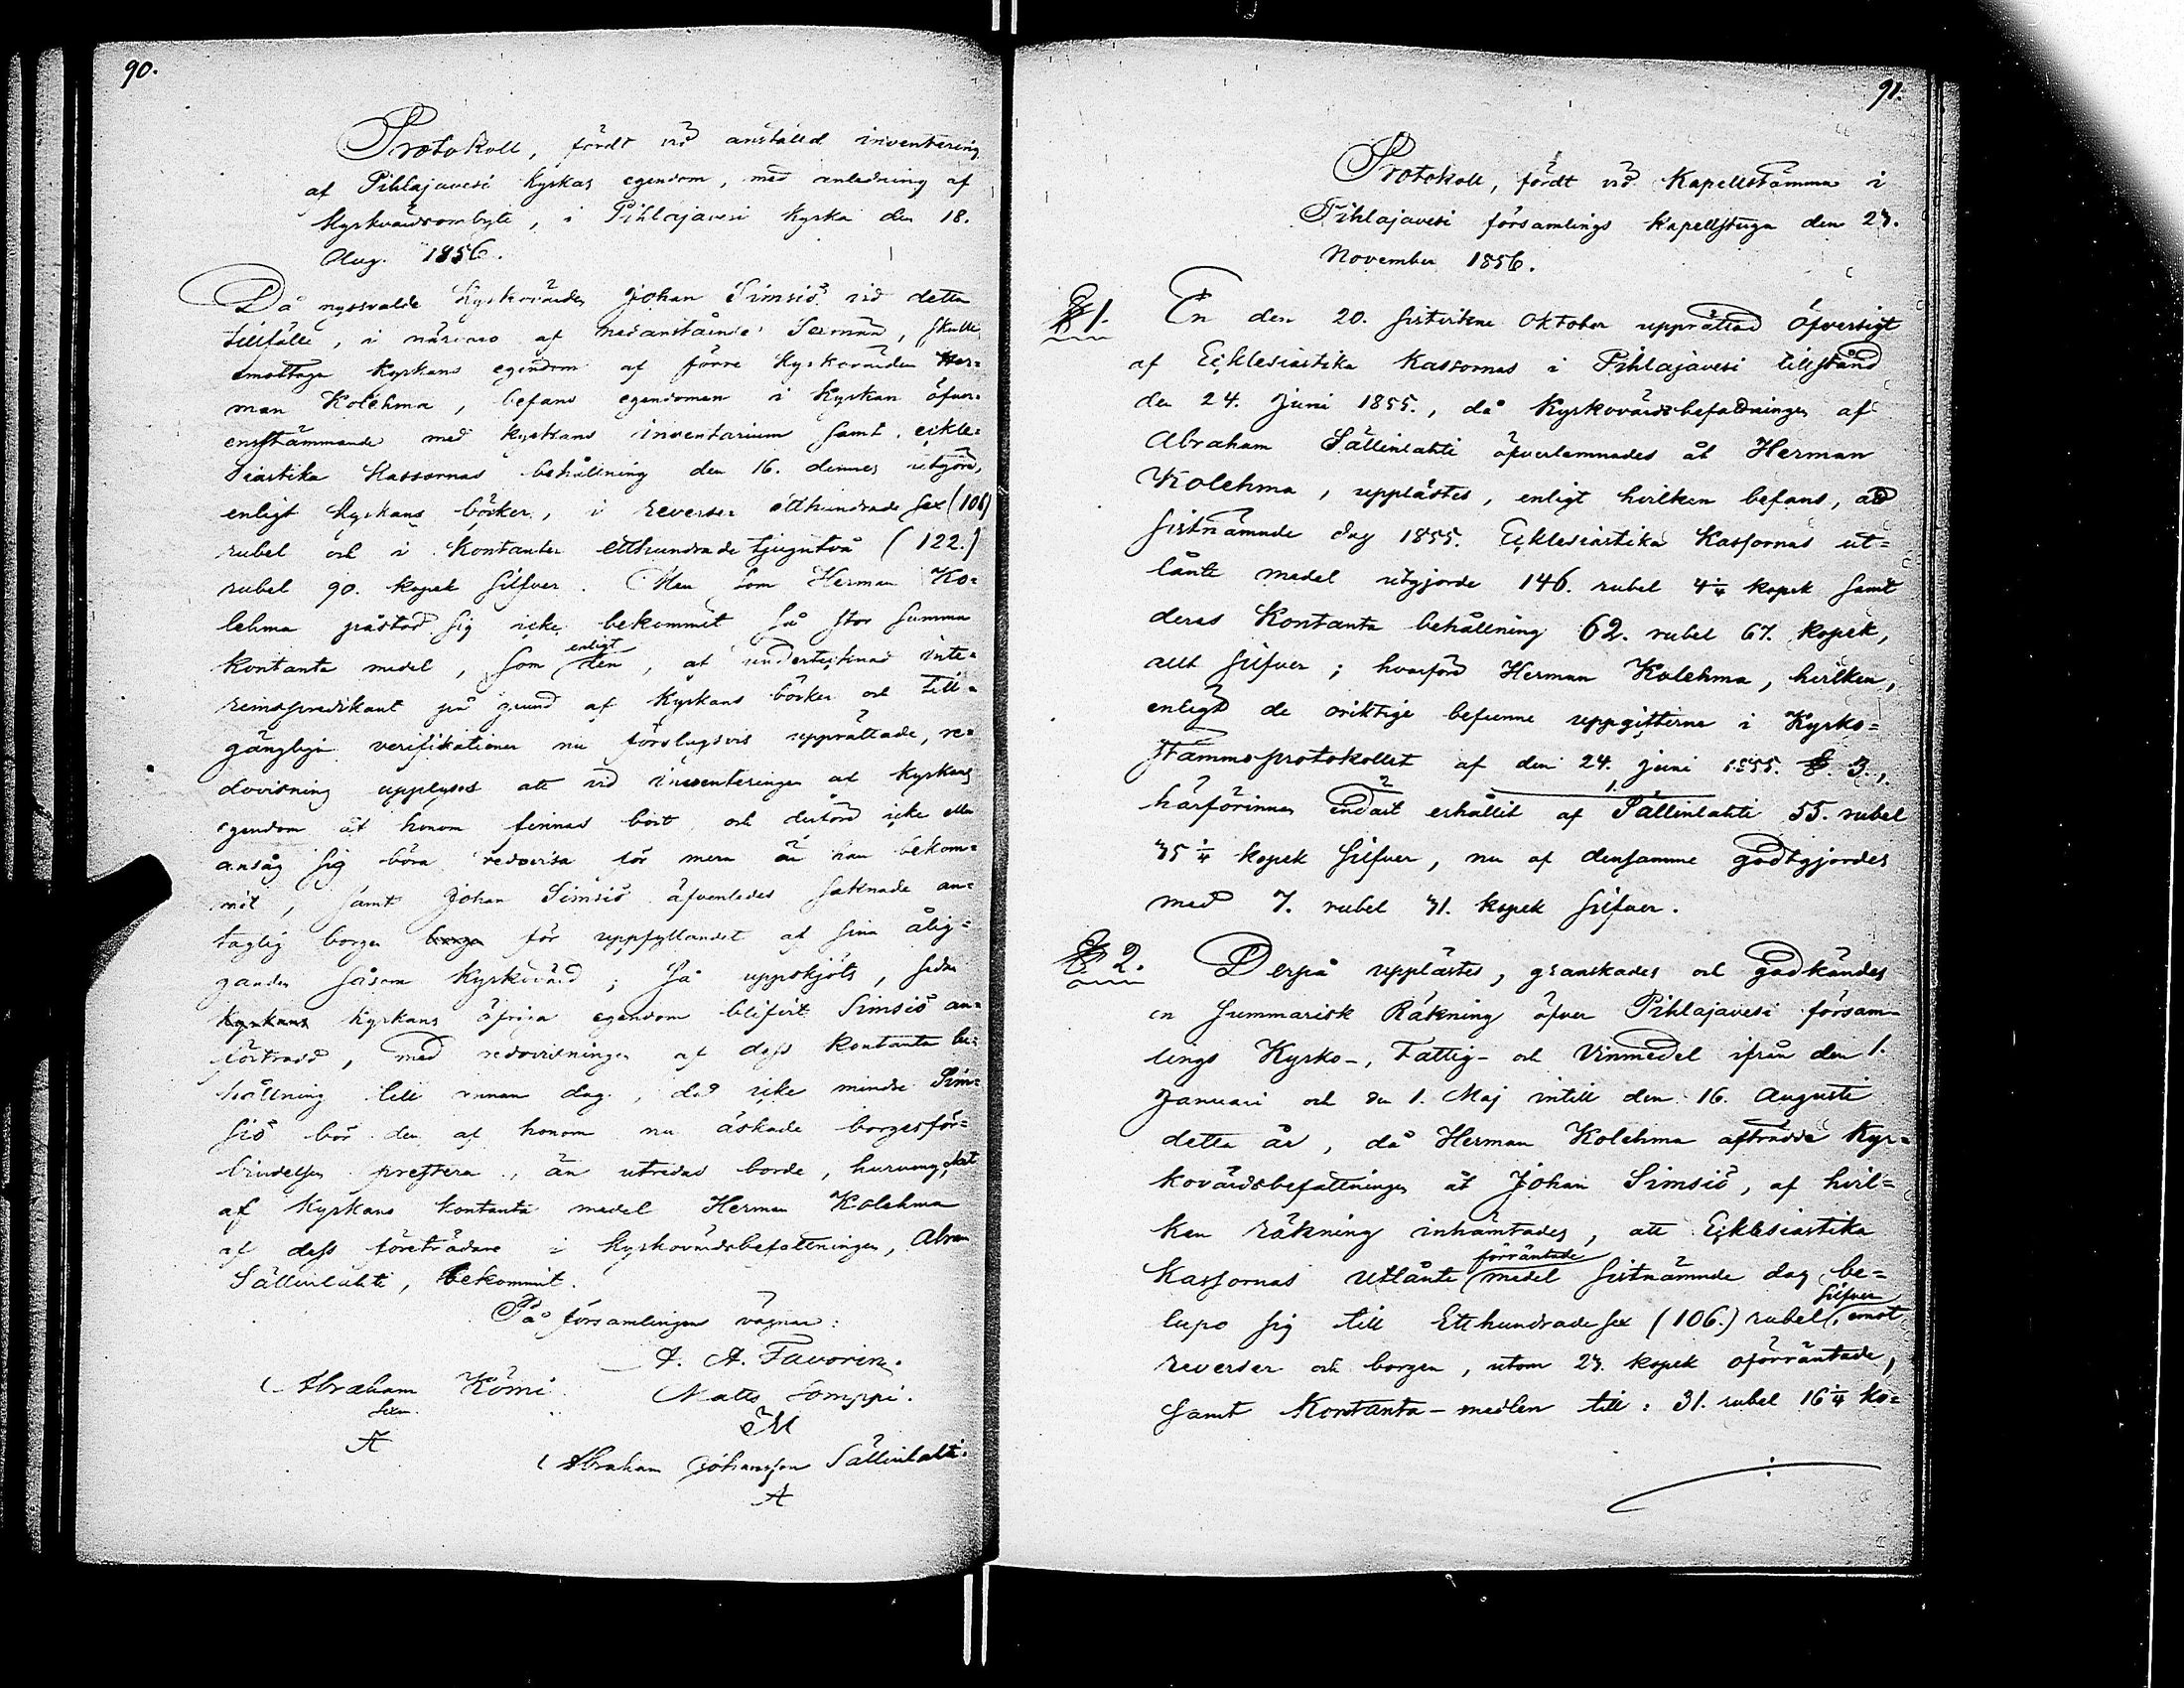 90.
Protokoll, fördt vid anställd inventering
af Pihlajavesi Kyrkas egendom, med anledning af
Kyrkvärdsombyte, i Pihlajavesi Kyrka den 18.
Aug. 1856.
Då nyssvalde Kyrkovärden Johan Simsiö vid detta
tillfälle, i närvaro af nedanstående Sexmän, skulle
emottaga Kyrkans egendom af förre Kyrkovärden Her-
man Kolehma, befans egendomen i Kyrkan öfver-
ensstämmande med Kyrkans inventarium samt eckle-
siastika Kassornas behållning den 16. dennes utgöra,
enligt Kyrkans böcker, i reverser etthundrade sex (106)
rubel och i Kontanter etthundrade tjugutvå (122.)
rubel 90. kopek silfver. Men som Herman Ko-
lehma påstod sig icke bekommit så stor summa
kontanta medel, som enligt den, af undertecknad inte-
rimspredikant på grund af Kyrkans böcker och till-
gängliga verifikationer nu förslagsvis upprättade, re-
dovisning upplyses att vid inventeringen af Kyrkans
egendom åt honom finnas bort och derföre icke eller
ansåg sig böra redovisa för mera än han bekom-
mit, samt Johan Simsiö äfvenledes saknade an-
taglig borgen borgen för uppfyllandet af sina ålig-
ganden såsom Kyrkvärd; så uppskjöts, sedan
Kyrkans Kyrkans öfriga egendom blifvit Simsiö an-
förtrodd, med redovisningen af dess kontanta be-
hållning till annan dag, då icke mindre Sim-
siö bör den af honom nu äskade borgesför-
bindelsen prestera, än utredas borde, huruvida
af Kyrkans kontanta medel Herman Kolehma
af dess företrädare i kyrkovärdsbefattningen, Abram
Sällinlahti, bekommit.
På församlingens vägnar:
A. A. Favorin.
Abraham Kömi Matts Lomppi.
sexm.
A M
Abraham Johansson Sällinlahti.
A
91.
Protokoll, fördt vid Kapellstämma i
Pihlajavesi församlings Kapellstuga den 23.
November 1856.
§ 1. En den 20. sistvikne Oktober upprättad öfversigt
af Ecklesiastika Kassornas i Pihlajavesi tillstånd
den 24. Juni 1855., då Kyrkovärdsbefattningen af
Abraham Sällinlahti öfverlemnades åt Herman
Kolehma, upplästes, enligt hvilken befans, att
sistnämnde dag 1855. Ecklesiastika Kassornas ut-
lånte medel utgjorde 146. rubel 4 1/4 kopek samt
deras Kontanta behållning 62. rubel 67. kopek,
allt silfver; hvarföre Herman Kolehma, hvilken,
enligt de oriktige befunne uppgifterne i Kyrko-
stämmoprotokollet af den 24. Juni 1855. § 3.,
härförinnan endast erhållit af Sällinlahti 55. rubel
35 1/4 kopek silfver, nu af densamme godtgjordes
med 7. rubel 31. kopek silfver.
§ 2. Derpå upplästes, granskades och godkändes
en summarisk Räkning öfver Pihlajavesi försam-
lings Kyrko-, Fattig- och Vinmedel ifrån den 1.
Januari och den 1. Maj intill den 16. Augusti
detta år, då Herman Kolehma afträdde Kyr-
kovärdsbefattningen åt Johan Simsiö, af hvil-
ken räkning inhämtades, att Ecklesiastika
Kassornas utlånte förräntade medel sistnämnde dag be-
lupo sig till Etthundrade sex (106.) rubel silfver, emot
reverser och borgen, utom 23. kopek oförräntade,
samt Kontanta-medlen till: 31. rubel 16 1/4 ko-